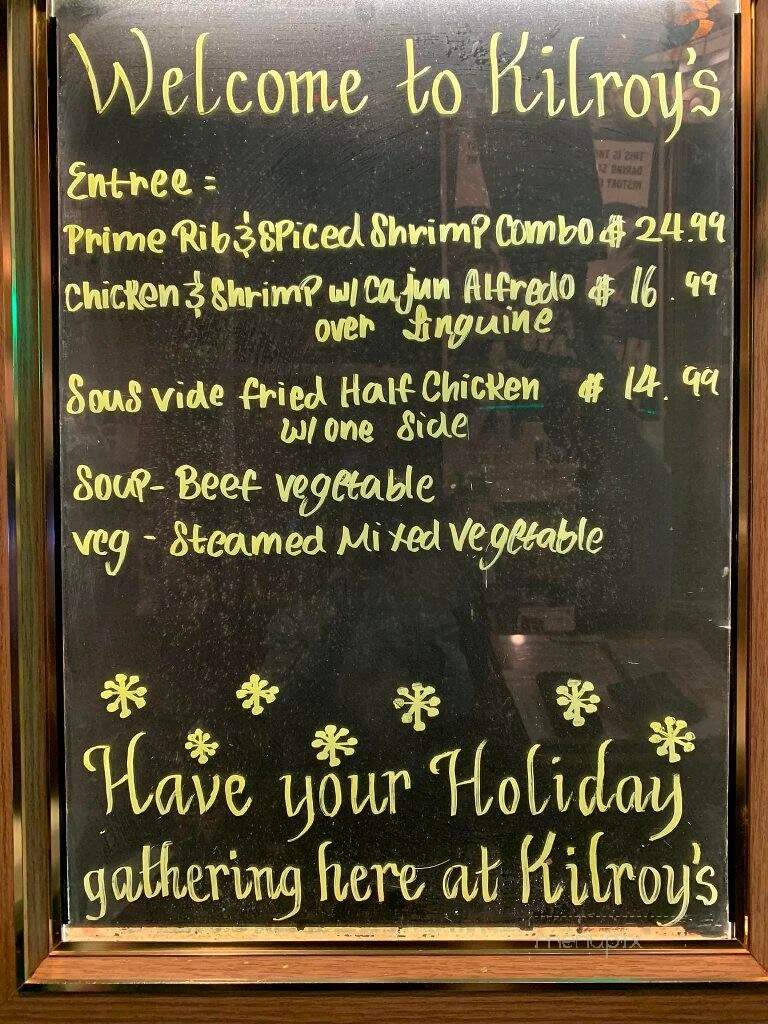 Welcome to Kilroy's
Entree =
Prime Rib & Spiced Shrimp Combo $ 24.99
Chicken & Shrimp w/ Cajun Alfredo $ 16.99
over Linguine
Sous vide fried Half Chicken $ 14.99
w/ one Side
Soup - Beef vegetable
veg - Steamed Mixed Vegetable
Have your Holiday
gathering here at Kilroy's